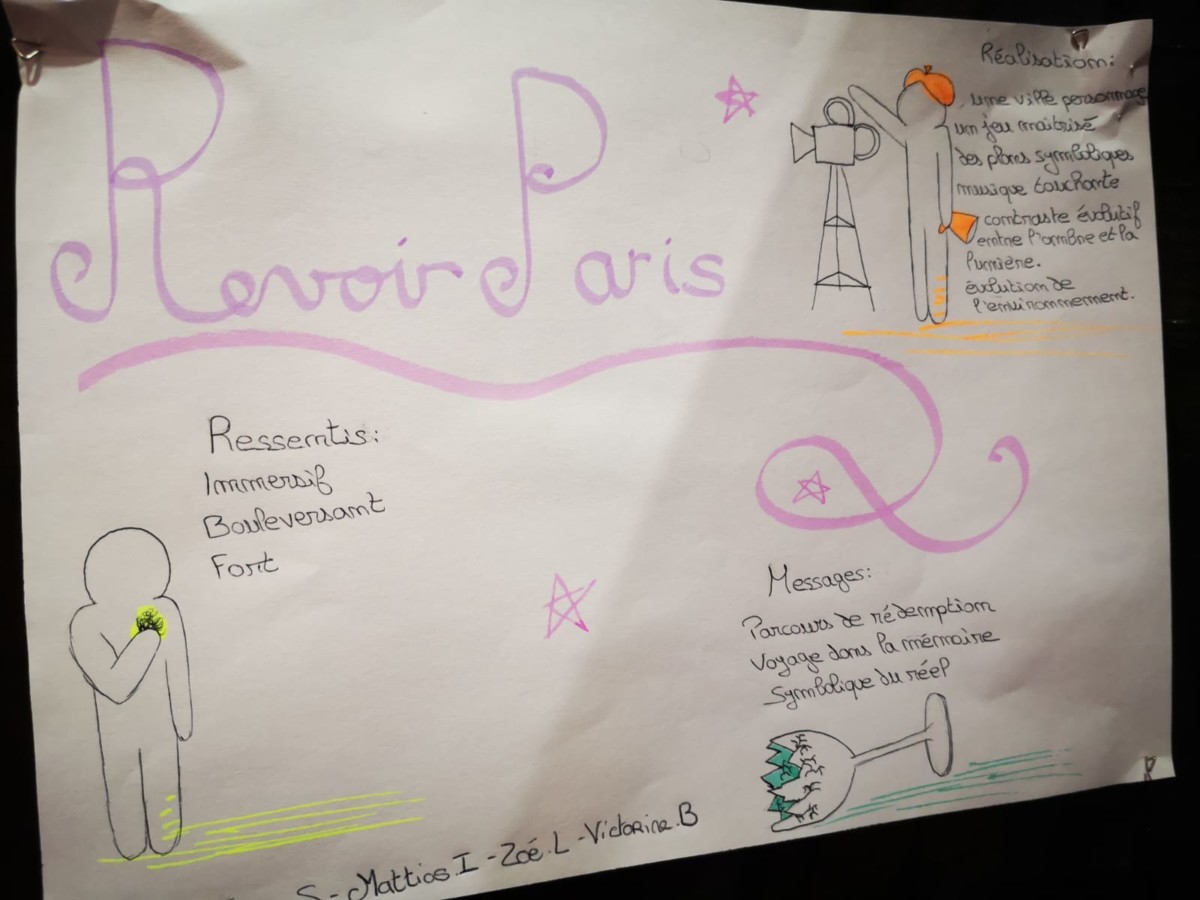 Revoir Paris
Réalisation:
une ville personnage
un jeu maitrisé
des plans symboliques
musique touchante
contraste évolutif
entre l'ombre et la
lumière.
évolution de
l'environnement.
Ressentis:
Immersif
Bouleversant
Fort
Messages:
Parcours de rédemption
Voyage dans la mémoire
Symbolique du réel
S - Mattios.I - Zoé.L - Victorine.B